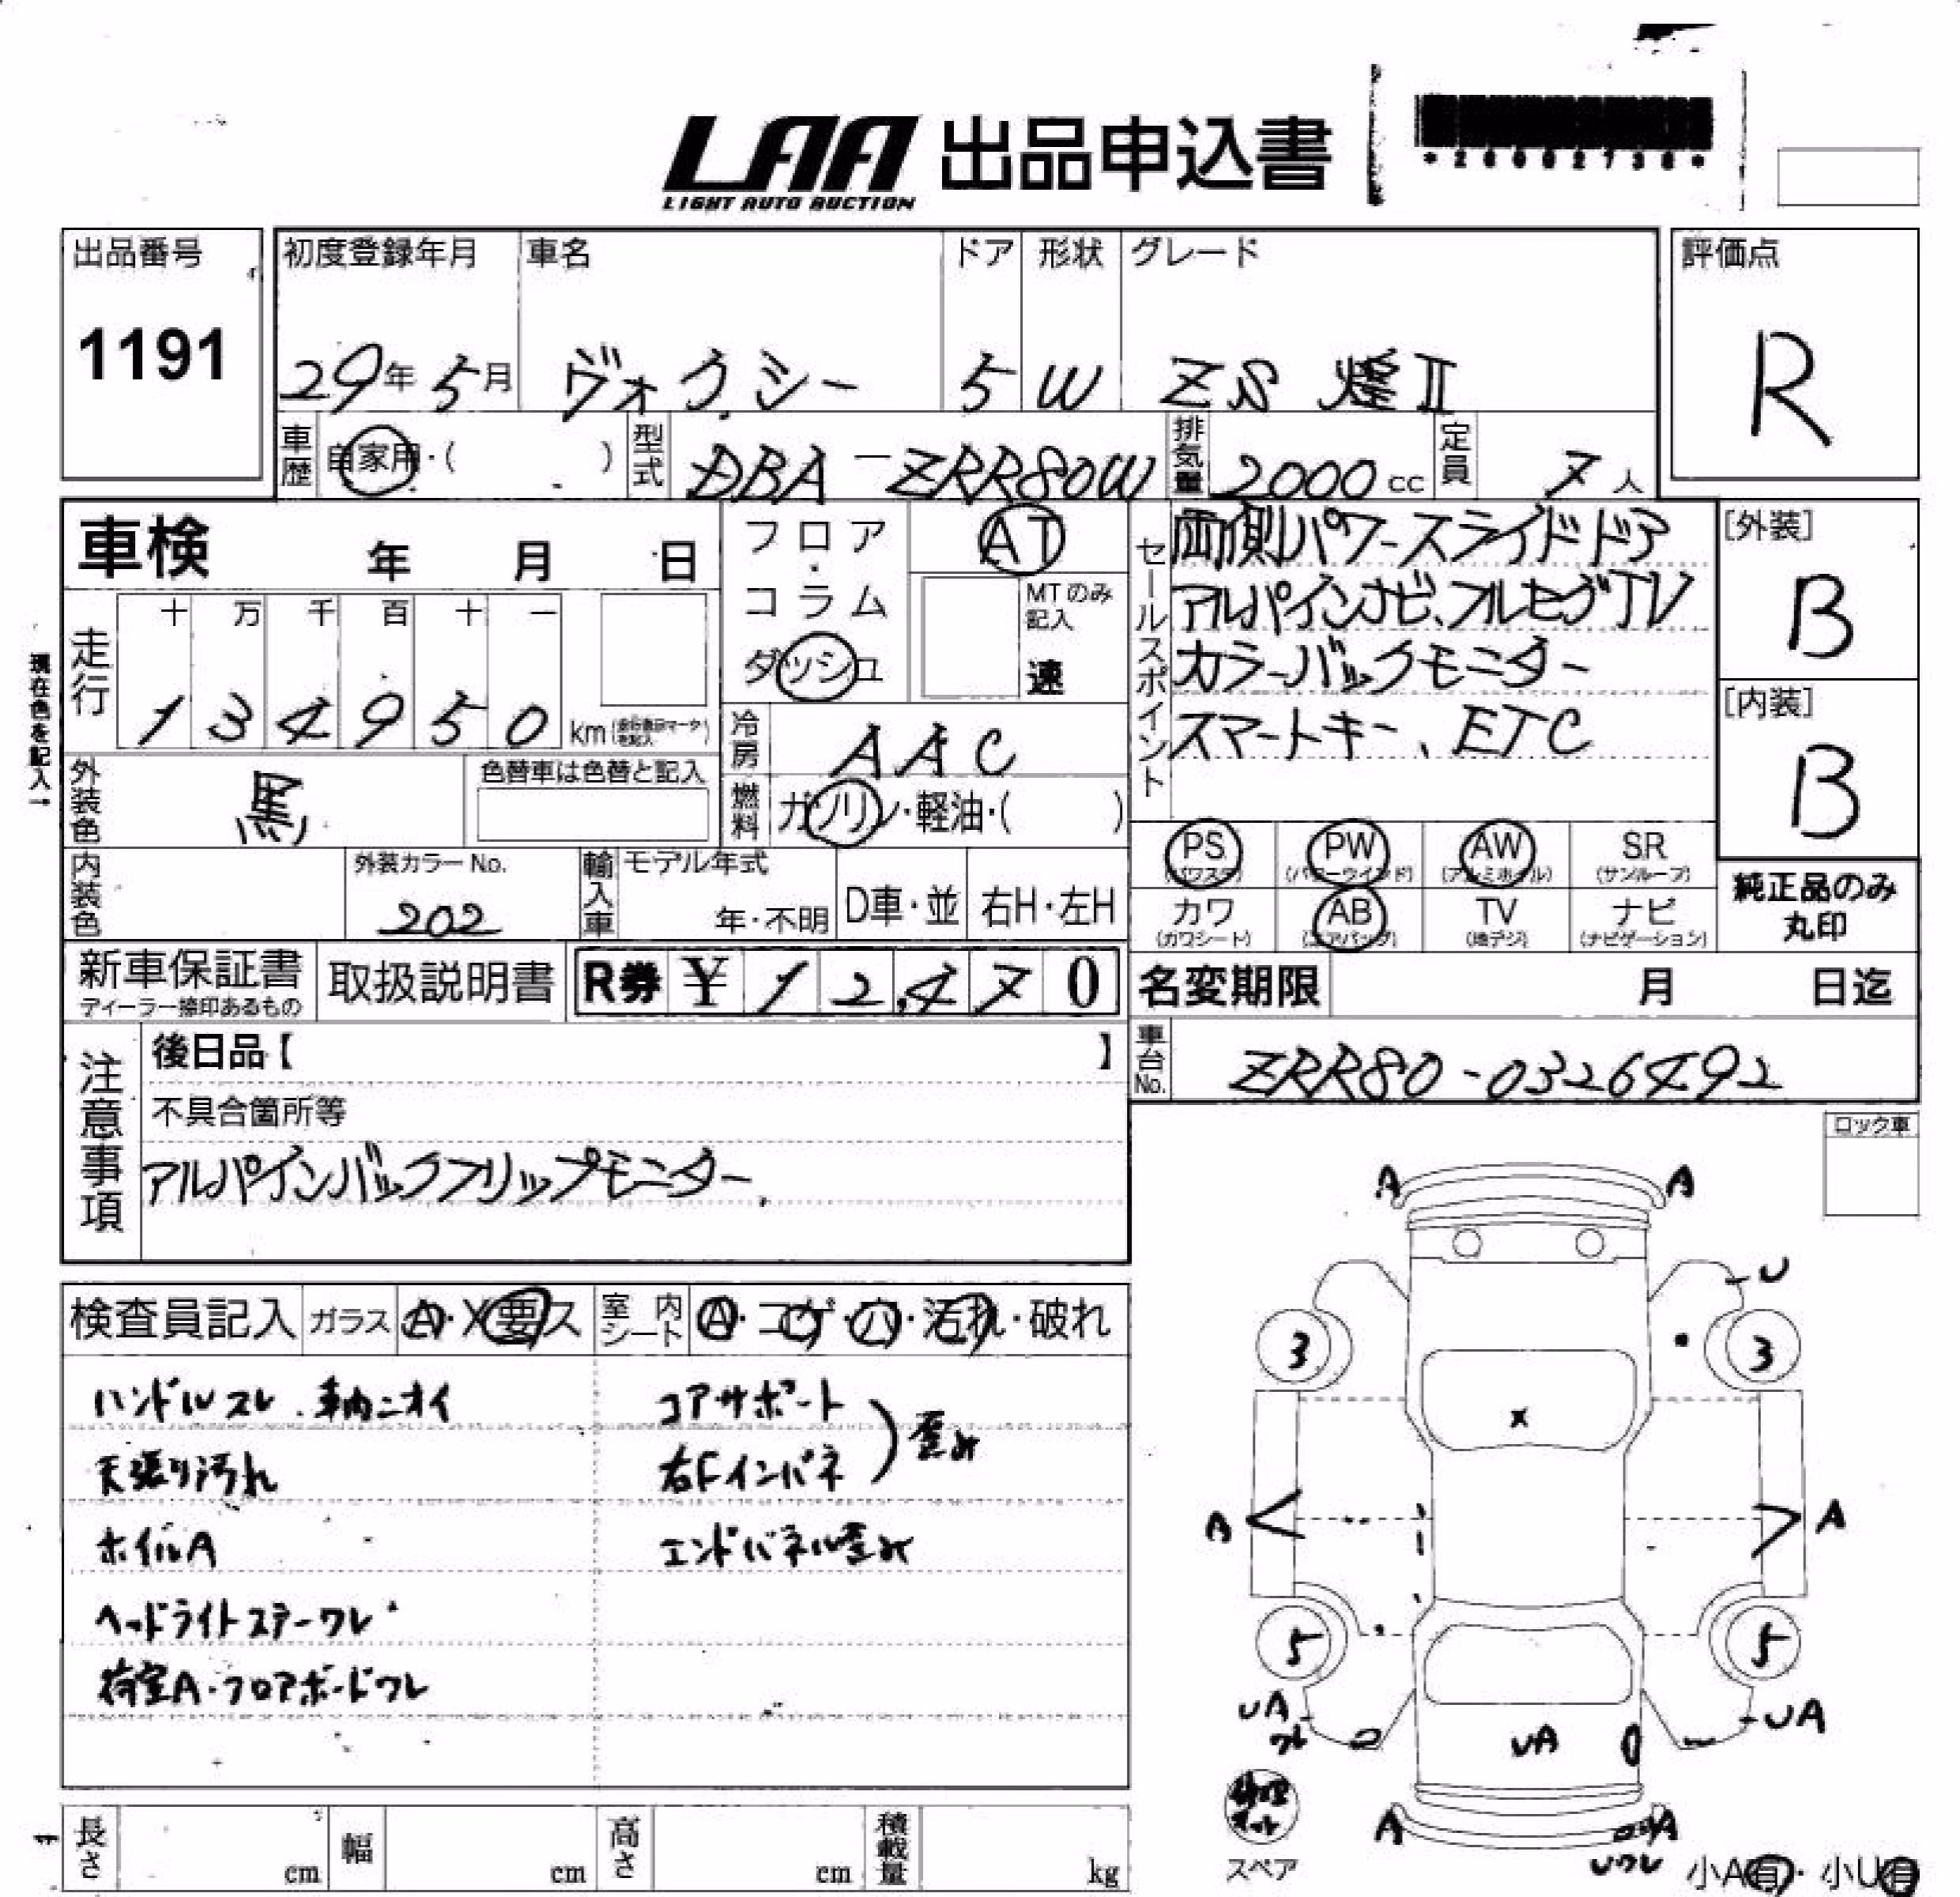 LAA 出品申込書
LIGHT AUTO AUCTION
出品番号
1191
初度登録年月 車名 ドア 形状 グレード
29年 5月 ヴォクシー 5 W ZS 煌II
評価点
R
車歴 自家用・( ) 型式 DBA-ZRR80W 排気量 2000 cc 定員 7人
車検 年 月 日
フロア・コラム
ダッシュ
AT
MTのみ記入
速
セールスポイント
両側パワースライドドア
アルパインナビ、フルセグTV
カラーバックモニター
スマートキー、ETC
[外装]
B
[内装]
B
現在色を記入→
走行 十 万 千 百 十 一
1 3 4 9 5 0 km
冷房 AAC
外装色 黒 色替車は色替と記入
燃料 ガソリン・軽油・( )
PS (パワステ) PW (パワーウインド) AW (アルミホイル) SR (サンルーフ)
カワ (カワシート) AB (エアバッグ) TV (地デジ) ナビ (ナビゲーション)
純正品のみ
丸印
内装色 外装カラーNo. 202
輸入車 モデル年式 年・不明 D車・並 右H・左H
新車保証書
ディーラー捺印あるもの
取扱説明書
R券 ¥ 12,470
名変期限 月 日迄
車台No. ZRR80-0326492
注意事項
後日品【 】
不具合箇所等
アルパインバックフリップモニター
ロック車
検査員記入 ガラス A・X要ス 室内シート A・コゲ・穴・汚れ・破れ
ハンドルスレ、車内ニオイ
天張り汚れ
ホイルA
ヘッドライトステーワレ
荷室A・フロアボードワレ
コアサポート
右Fインパネ
歪み
エンドパネル歪み
A A
U
3 3
X
A A
5 5
UA ワレ
UA
UA
A A
Uワレ
修理キット
スペア
小A有・小U有
長さ cm 幅 cm 高さ cm 積載量 kg